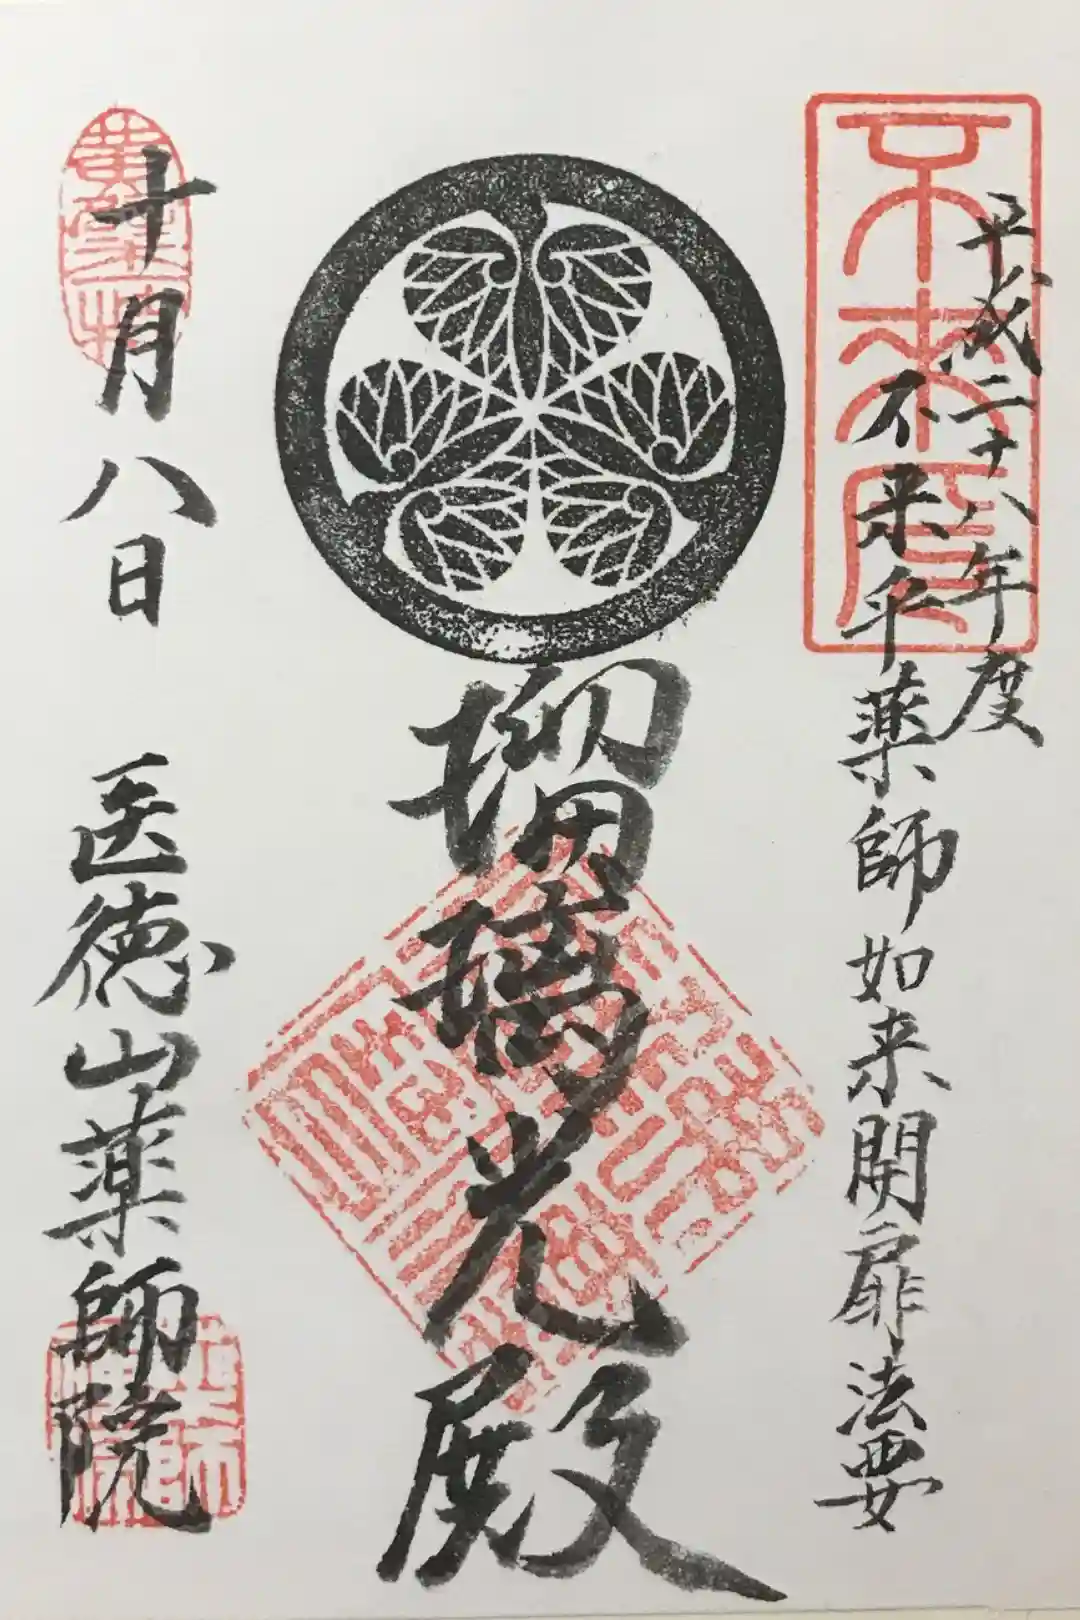 平成二十八年度
不来乎薬師如来開扉法要
瑠璃光殿
十月八日 医徳山薬師院